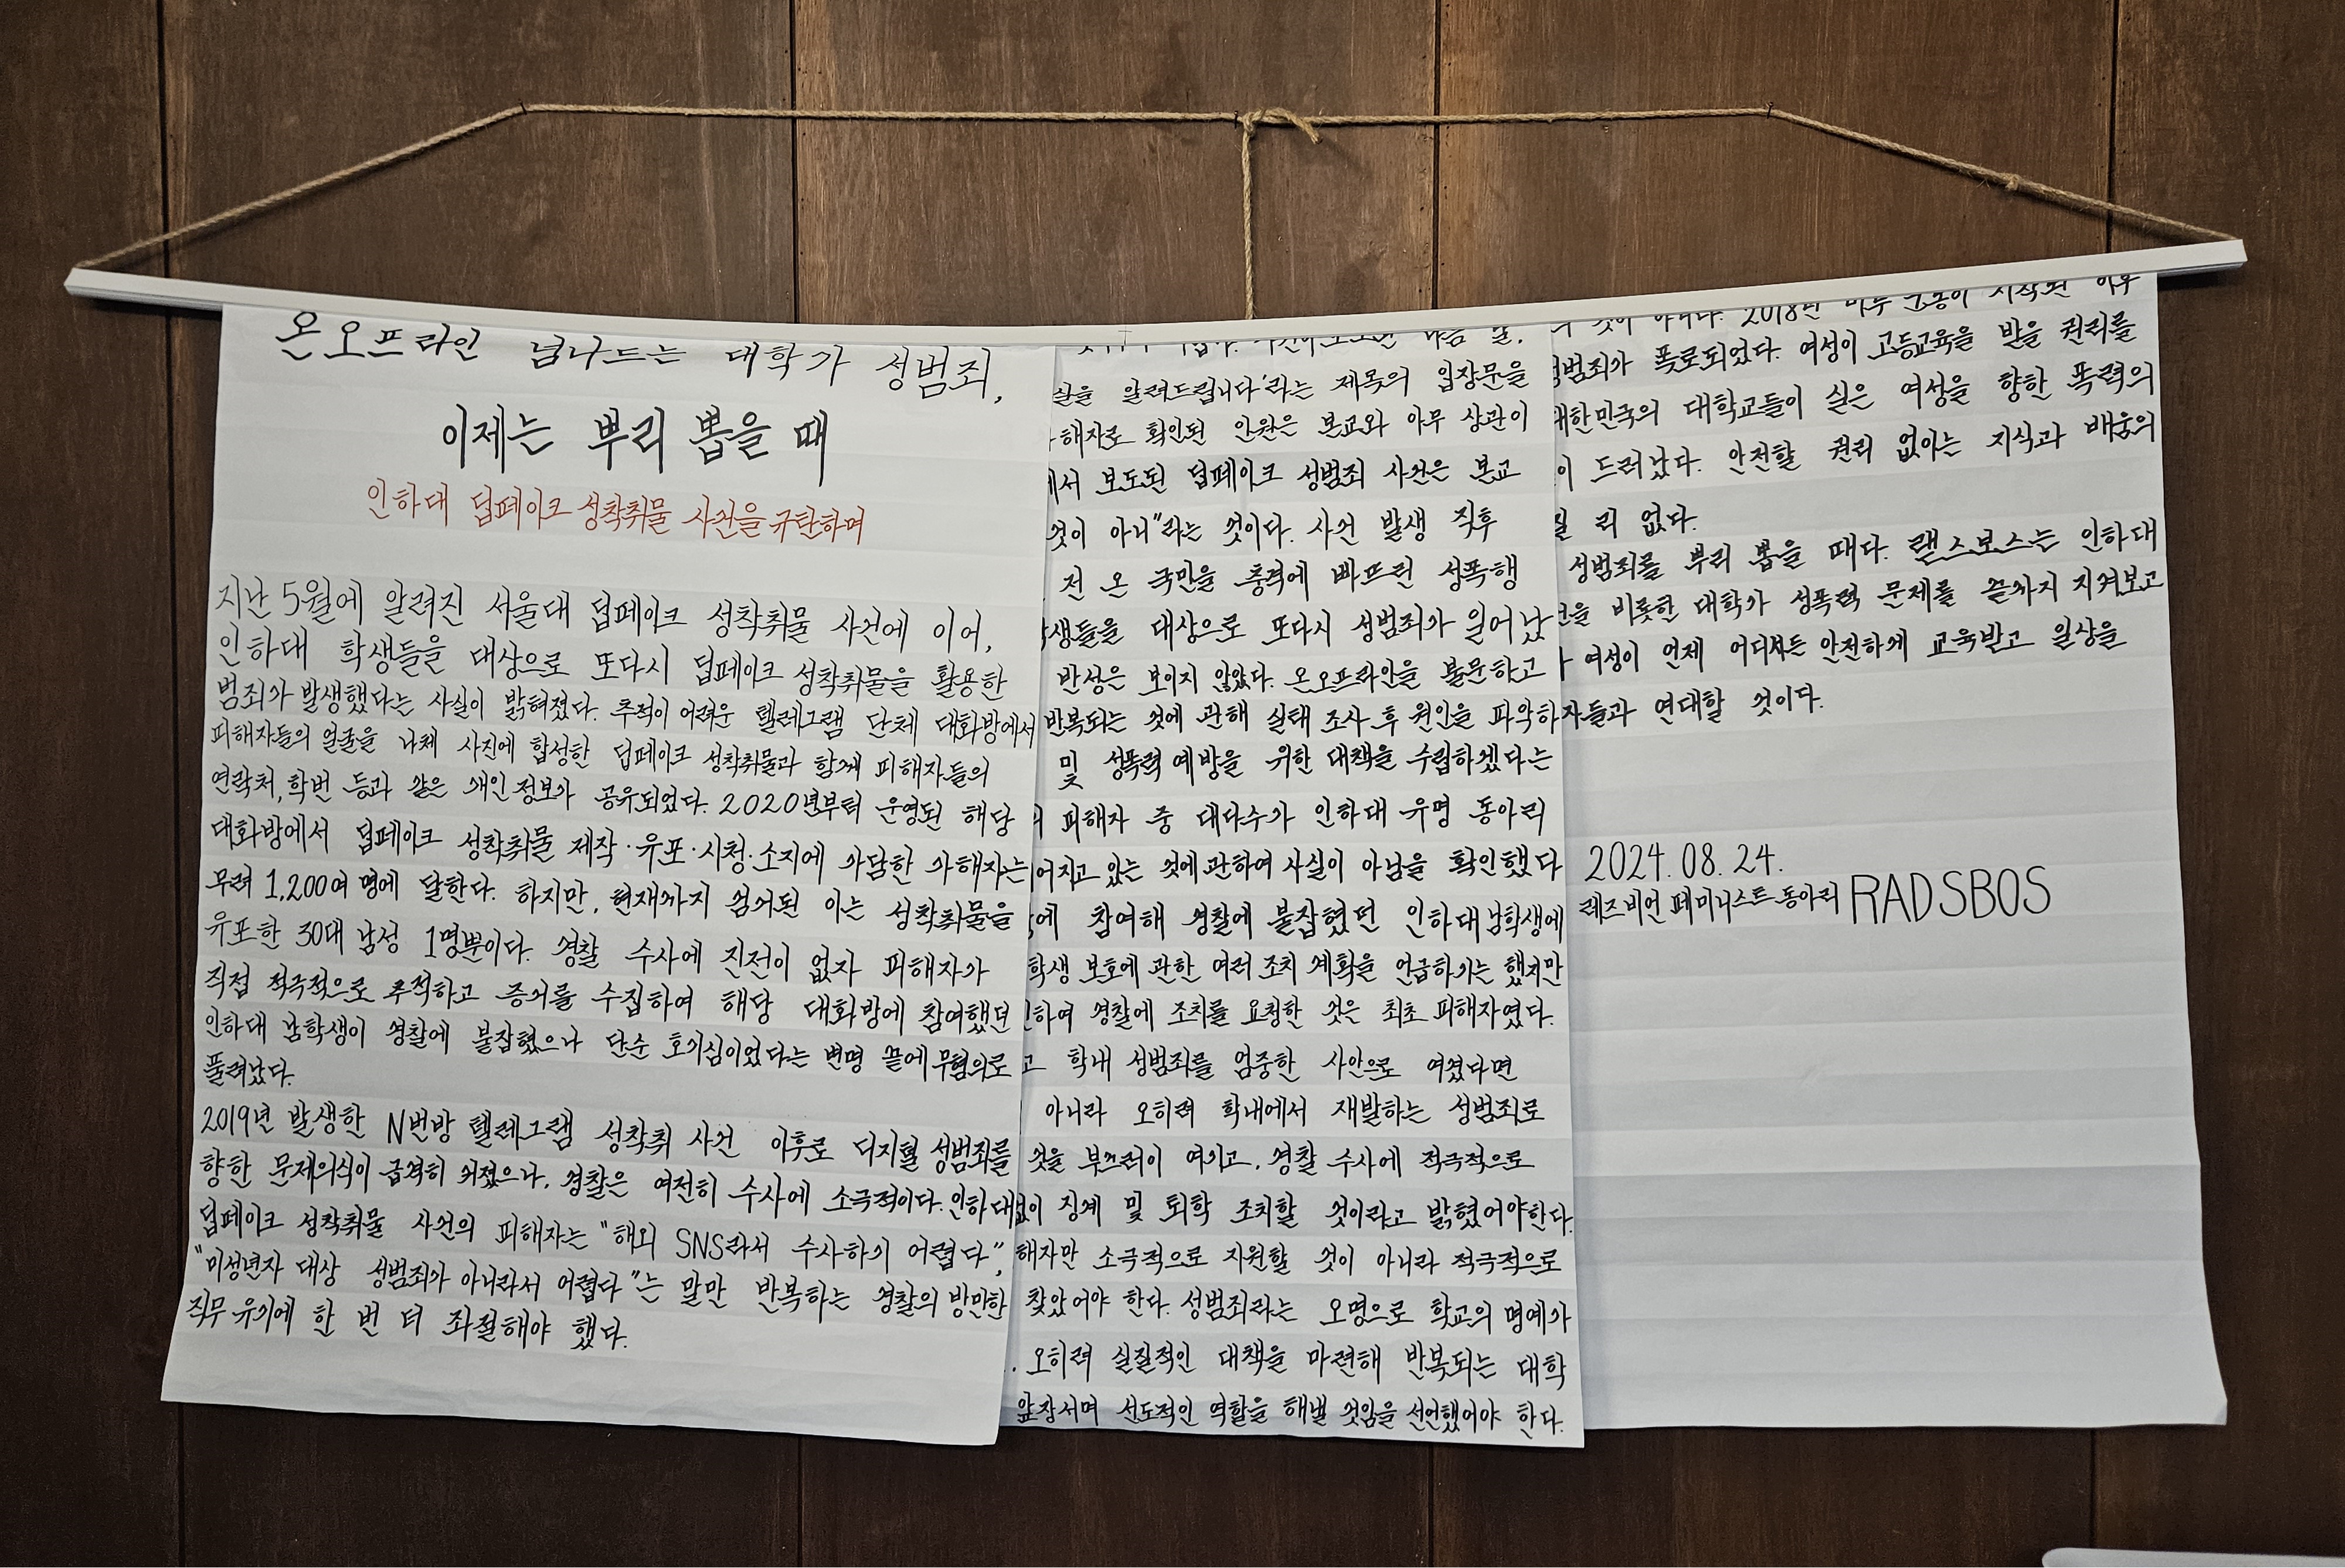 온오프라인 넘나드는 대학가 성범죄,
이제는 뿌리 뽑을 때
인하대 딥페이크 성착취물 사건을 규탄하며
지난 5월에 알려진 서울대 딥페이크 성착취물 사건에 이어,
인하대 학생들을 대상으로 또다시 딥페이크 성착취물을 활용한
범죄가 발생했다는 사실이 밝혀졌다. 추적이 어려운 텔레그램 단체 대화방에서
피해자들의 얼굴을 나체 사진에 합성한 딥페이크 성착취물과 함께 피해자들의
연락처, 학번 등과 같은 개인정보가 공유되었다. 2020년부터 운영된 해당
대화방에서 딥페이크 성착취물 제작·유포·시청·소지에 가담한 가해자는
무려 1,200여 명에 달한다. 하지만, 현재까지 검거된 이는 성착취물을
유포한 30대 남성 1명뿐이다. 경찰 수사에 진전이 없자 피해자가
직접 적극적으로 추적하고 증거를 수집하여 해당 대화방에 참여했던
인하대 남학생이 경찰에 붙잡혔으나 단순 호기심이었다는 변명 끝에 무혐의로
풀려났다.
2019년 발생한 N번방 텔레그램 성착취 사건 이후로 디지털 성범죄를
향한 문제의식이 급격히 커졌으나, 경찰은 여전히 수사에 소극적이다. 인하대
딥페이크 성착취물 사건의 피해자는 "해외 SNS라서 수사하기 어렵다",
"미성년자 대상 성범죄가 아니라서 어렵다"는 말만 반복하는 경찰의 방만한
직무 유기에 한 번 더 좌절해야 했다.
다음 날,
실을 알려드립니다'라는 제목의 입장문을
해자로 확인된 인원은 본교와 아무 상관이
서 보도된 딥페이크 성범죄 사건은 본교
것이 아니"라는 것이다. 사건 발생 직후
전 온 국민을 충격에 빠뜨린 성폭행
생들을 대상으로 또다시 성범죄가 일어났
반성은 보이지 않았다. 온오프라인을 불문하고
반복되는 것에 관해 실태 조사 후 원인을 파악하
및 성폭력 예방을 위한 대책을 수립하겠다는
피해자 중 대다수가 인하대 유명 동아리
어지고 있는 것에 관하여 사실이 아님을 확인했다
에 참여해 경찰에 붙잡혔던 인하대 남학생에
학생 보호에 관한 여러 조치 계획을 언급하기는 했지만
하여 경찰에 조치를 요청한 것은 최초 피해자였다.
고 학내 성범죄를 엄중한 사안으로 여겼다면
아니라 오히려 학내에서 재발하는 성범죄로
것을 부끄러이 여기고, 경찰 수사에 적극적으로
없이 징계 및 퇴학 조치할 것이라고 밝혔어야한다.
해자만 소극적으로 지원할 것이 아니라 적극적으로
찾았어야 한다. 성범죄라는 오명으로 학교의 명예가
. 오히려 실질적인 대책을 마련해 반복되는 대학
앞장서며 선도적인 역할을 해낼 것임을 선언했어야 한다.
것이 아니다. 2018년 미투 운동이 시작된 이후
성범죄가 폭로되었다. 여성이 고등교육을 받을 권리를
대한민국의 대학교들이 실은 여성을 향한 폭력의
이 드러났다. 안전할 권리 없이는 지식과 배움의
질 리 없다.
성범죄를 뿌리 뽑을 때다. 랟스보스는 인하대
건을 비롯한 대학가 성폭력 문제를 끝까지 지켜보고
여성이 언제 어디서든 안전하게 교육받고 일상을
자들과 연대할 것이다.
2024. 08. 24.
레즈비언 페미니스트 동아리 RADSBOS